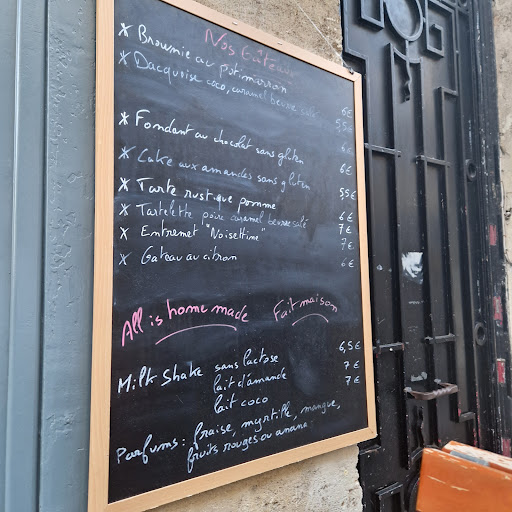 Nos Gâteaux
* Brownie au potimarron 6€
* Dacquoise coco, caramel beurre salé 5,5€
6€
* Fondant au chocolat sans gluten 6€
* Cake aux amandes sans gluten 5,5€
* Tarte rustique pomme 6€
* Tartelette poire caramel beurre salé 7€
* Entremet "Noisettine" 7€
* Gateau au citron 6€
All is home made Fait maison
Milk Shake sans lactose 6,5€
lait d'amande 7€
lait coco 7€
Parfums: fraise, myrtille, mangue,
fruits rouges ou anana